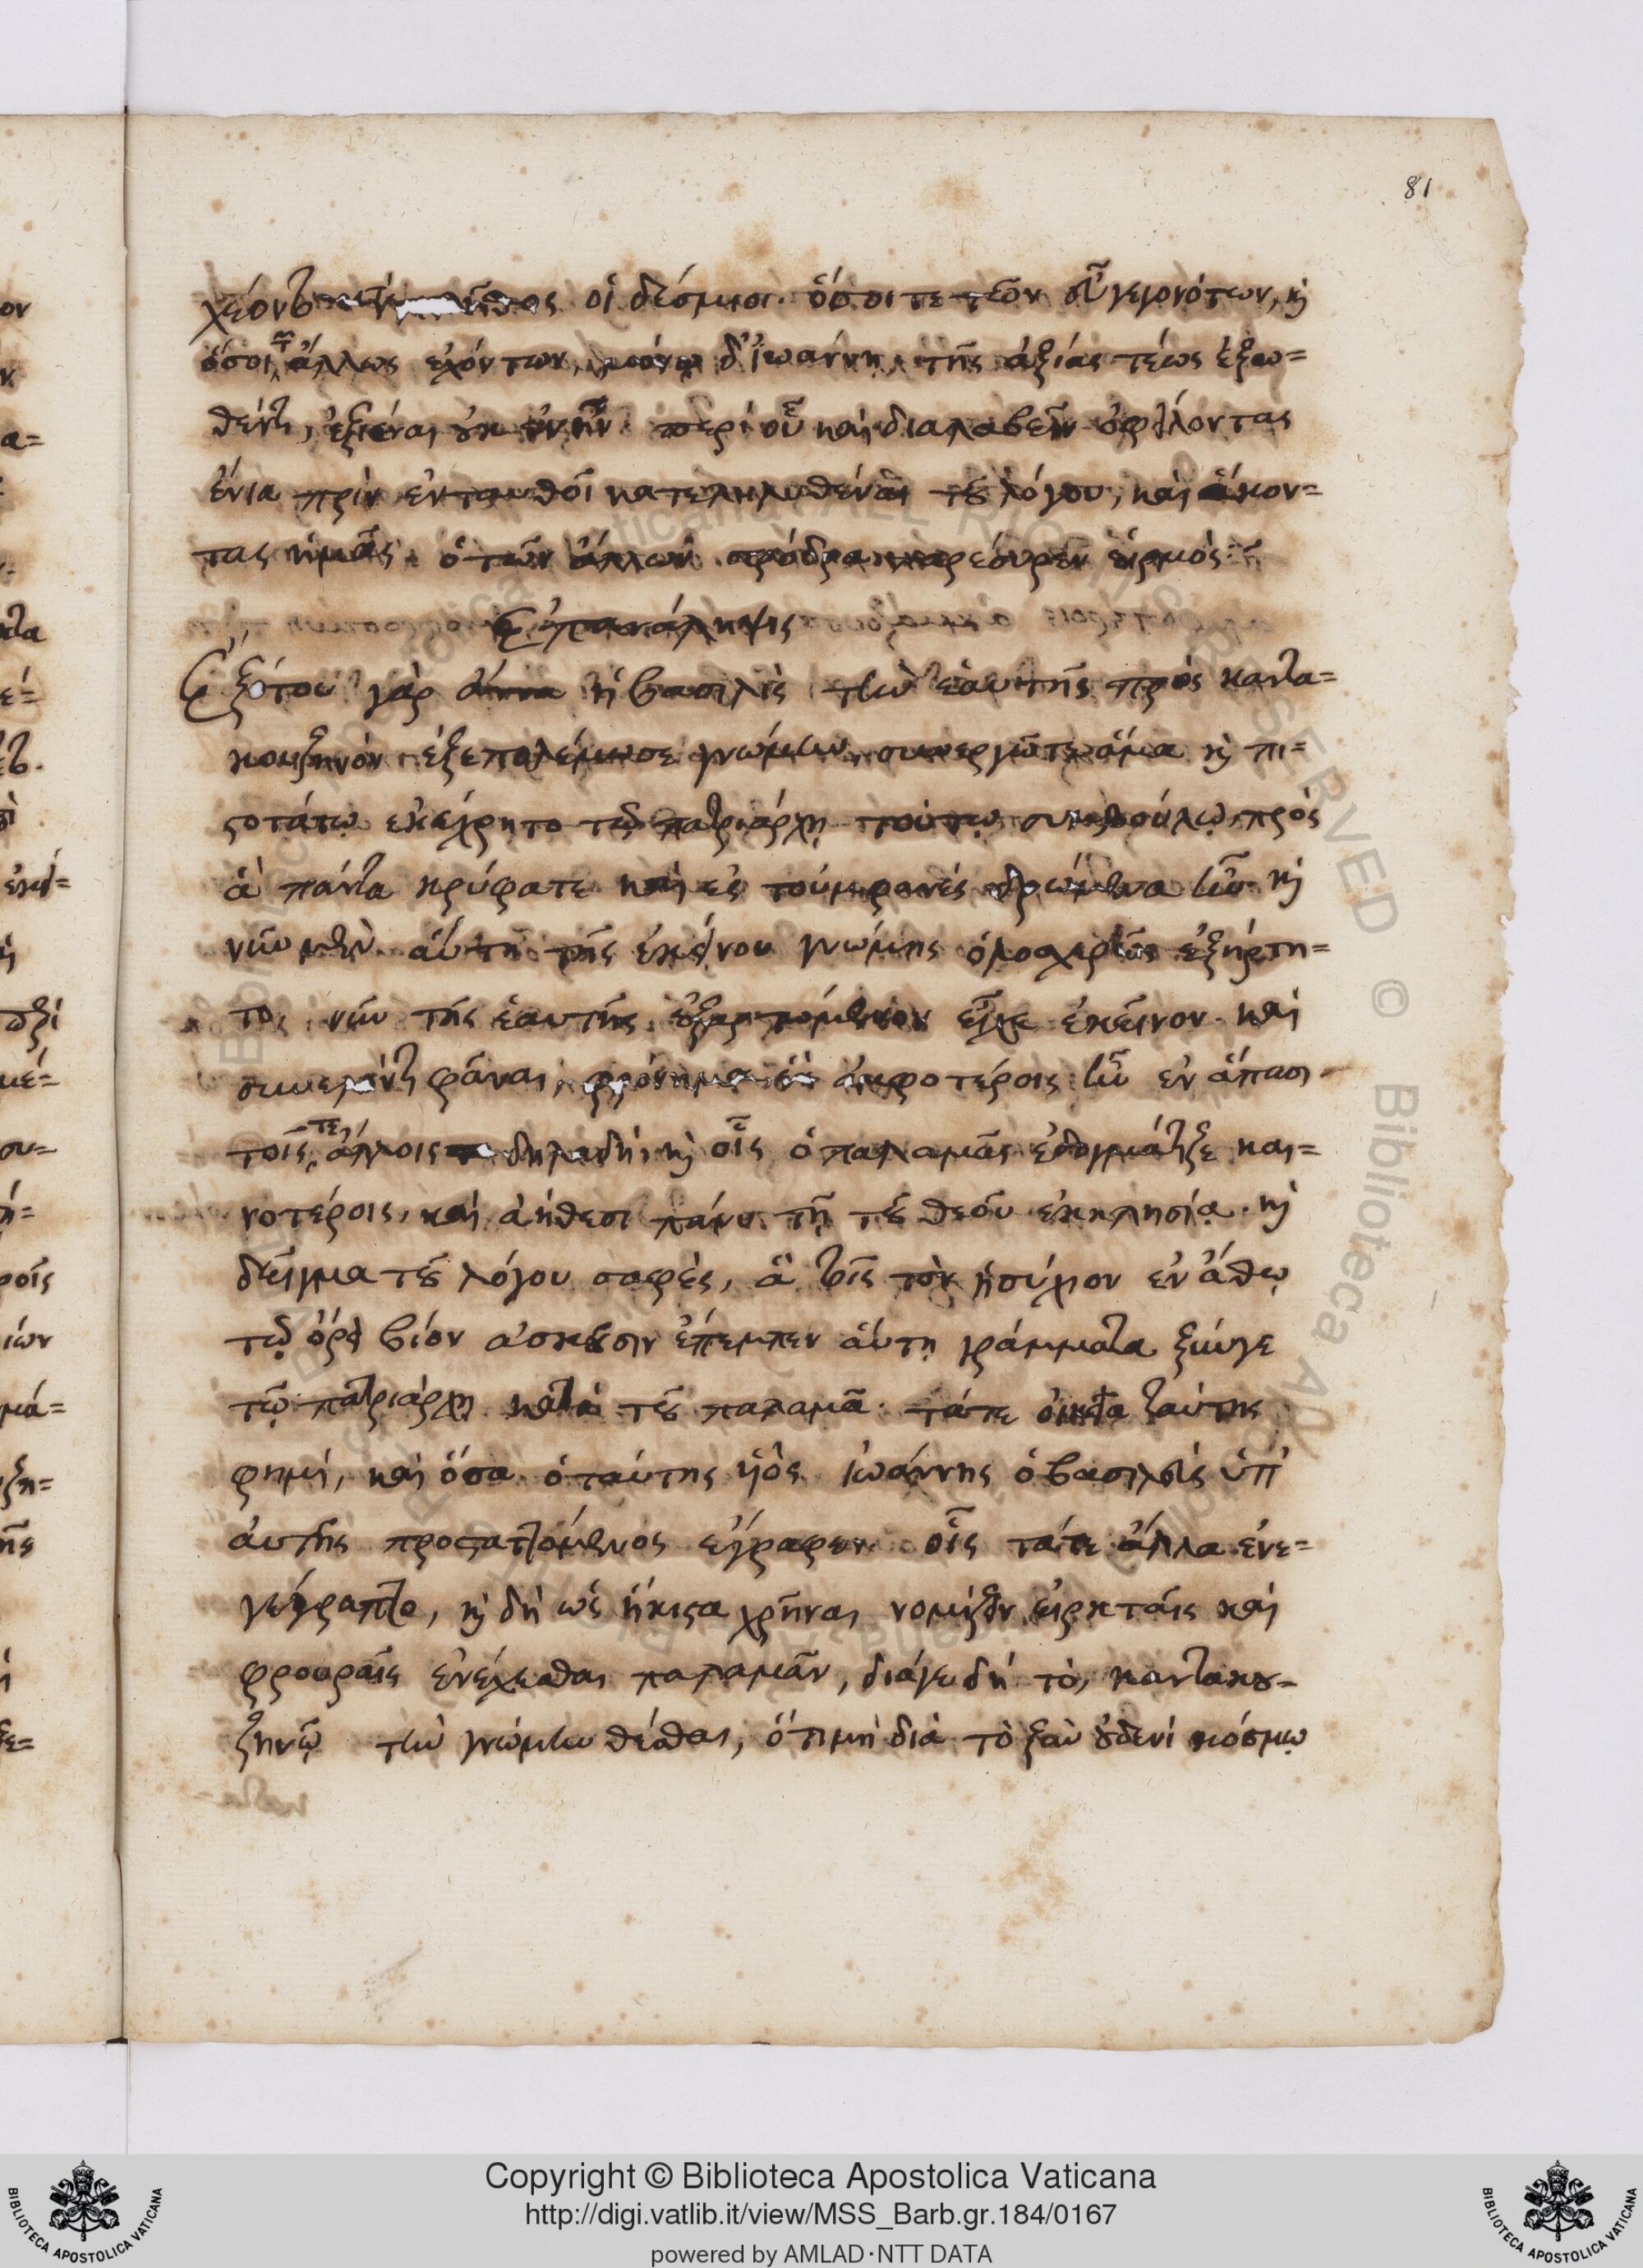 81
οἱ δέσμιοι. ὅσοι τε τῶν εὖ γεγονότων, κὶ
ὅσοι τῶν ἄλλως ἐχόντων, μόνῳ δ' ἰωάννῃ τῆς ἀξίας τέως ἐξω=
θέντι, ἐξιέναι οὐκ ἐνῆν. περὶ οὗ καὶ διαλαβεῖν ὀφείλοντας
ἔνια πρὶν ἐνταυθοῖ κατεληλυθέναι τοῦ λόγου, καὶ ἄκον=
τας ἡμᾶς ὁ τῶν ἄλλων σφόδρα παρέσυρεν εἱρμός:
Ἐπανάληψις
Ἐξότου γὰρ ἄννα ἡ βασιλὶς τὴν ἑαυτῆς πρὸς καντα=
κουζηνὸν ἐξεπολέμωσε γνώμην, συνεργῶ τε ἅμα κὶ πι=
στοτάτῳ ἐκέχρητο τῷ πατριάρχῃ τούτῳ συμβούλῳ, πρὸς
ἃ πάντα κρύφα τε καὶ ἐς τοὐμφανὲς δρώμενα ἦν. κὶ
νῦν μὲν αὐτὴ τῆς ἐκείνου γνώμης ὁλοσχερῶς ἐξήρτη=
το, νῦν τῆς ἑαυτῆς ἐξαρτώμενον εἶχε ἐκεῖνον. καὶ
φάναι, φρόνημα ἓν ἀμφοτέροις ἦν ἐν ἅπασι
τοῖς τε ἄλλοις δηλαδὴ, κὶ οἷς ὁ παλαμᾶς ἐδογμάτιζε και=
νοτέροις, καὶ ἀήθεσι πάνυ τῇ τοῦ θεοῦ ἐκκλησίᾳ. κὶ
δεῖγμα τοῦ λόγου σαφὲς, ἃ τοῖς τὸν ἡσύχιον ἐν ἄθῳ
τῷ ὄρει βίον ἀσκοῦσιν ἔπεμπεν αὐτὴ γράμματα ξύν γε
τῷ πατριάρχῃ κατὰ τοῦ παλαμᾶ. τά τε οἰκεῖα ταύτης
φημὶ, καὶ ὅσα ὁ ταύτης υἱὸς ἰωάννης ὁ βασιλεὺς ὑπ'
αὐτῆς προσταττόμενος ἔγραφεν. οἷς τά τε ἄλλα ἐνε=
γέγραπτο, κὶ δὴ ὡς ἥκιστα χρῆναι νομίζειν εἱρκταῖς καὶ
φρουραῖς ἐνέχεσθαι παλαμᾶν, διά γε δὴ τὸ, καντακου=
ζηνῷ τὴν γνώμην θέσθαι, ὅτι μὴ διὰ τὸ ξὺν οὐδενὶ κόσμῳ
Copyright © Biblioteca Apostolica Vaticana
http://digi.vatlib.it/view/MSS_Barb.gr.184/0167
powered by AMLAD·NTT DATA
BIBLIOTECA APOSTOLICA VATICANA
BIBLIOTECA APOSTOLICA VATICANA